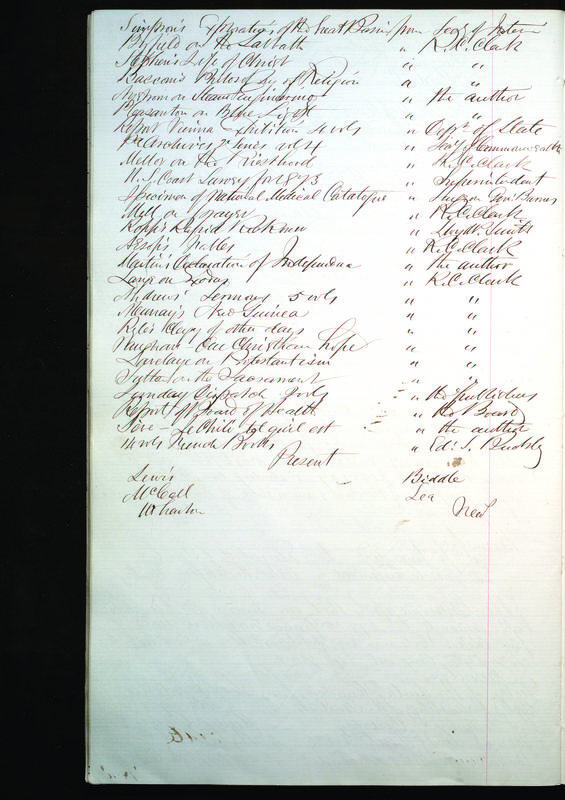 Simpson's Explorations of the Great Basin from Secy of Interior
Byfield on the Sabbath " R. C. Clark
Stephen's Life of Christ " "
Bascom's Philosophy of Religion " "
Nystrom on Steam Engineering " the author
Pleasanton on Blue Light " "
Report Vienna Exhibition 4 vols " Dept of State
Pa Archives 2 Series vol 4 " Secy of Commonwealth
Miller on the Priesthood " R. C. Clark
U. S. Coast Survey for 1873 " Superintendent
Specimen of National Medical Catalogue " Surgeon Genl Barnes
Mill on Prayer " R. C. Clark
Kopp's Rapid " Lloyd P. Smith
Aesop's Fables " R. C. Clark
Martin's Declaration of Independence " the author
Lange on Exodus " R. C. Clark
Andrews' Sermons 5 vols " "
Murray's New Guinea " "
Ryle's Clergy of other days " "
Vaughan Our Christian Hope " "
Lovelace on Protestantism " "
on the Sacrament " "
Sunday Dispatch vols " the publishers
Report of Board of Health " the Board
Sève - Le Chili tel qu'il est " the author
14 vols French Books " Ed. S.
Present
Lewis Biddle
McCall Lea
Wharton Neal